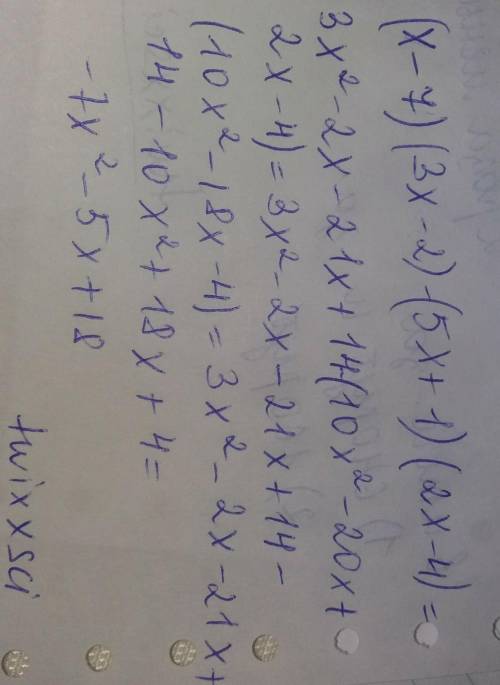 (x-7)(3x-2)-(5x+1)(2x-4)=
3x²-2x-21x+14(10x²-20x+
2x-4)=3x²-2x-21x+14-
(10x²-18x-4)=3x²-2x-21x+
14-10x²+18x+4=
-7x²-5x+18
twixxsci